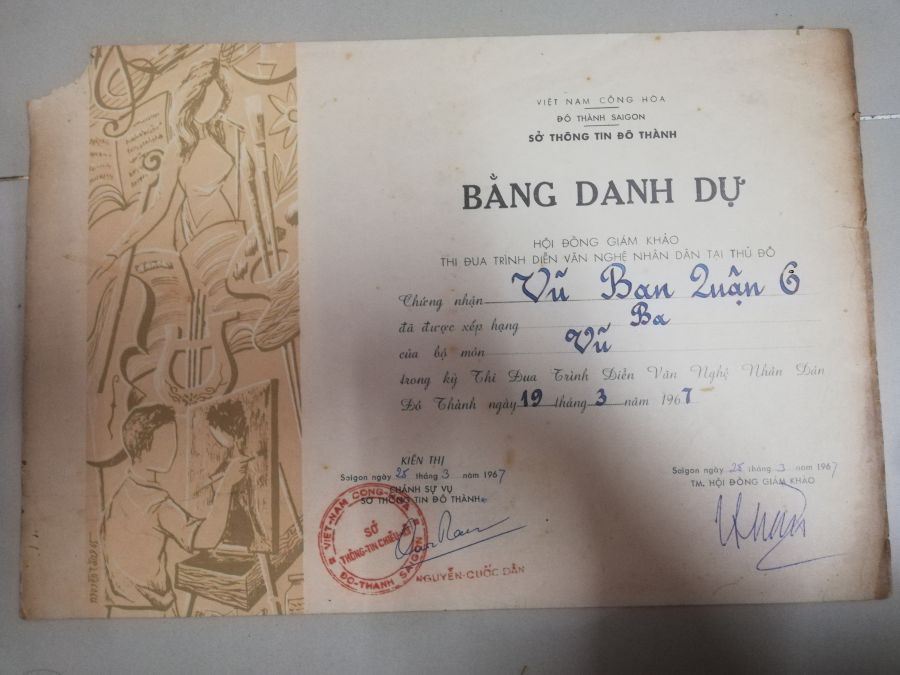 VIỆT NAM CỘNG HÒA
ĐÔ THÀNH SAIGON
SỞ THÔNG TIN ĐÔ THÀNH
BẰNG DANH DỰ
HỘI ĐỒNG GIÁM KHẢO
THI ĐUA TRÌNH DIỄN VĂN NGHỆ NHÂN DÂN TẠI THỦ ĐÔ
Chứng nhận Vũ Ban Quận 6
đã được xếp hạng Ba
của bộ môn Vũ
trong kỳ Thi Đua Trình Diễn Văn Nghệ Nhân Dân
Đô Thành ngày 19 tháng 3 năm 1967
KIẾN THỊ
Saigon ngày 25 tháng 3 năm 1967
CHÁNH SỰ VỤ
SỞ THÔNG TIN ĐÔ THÀNH
VIỆT-NAM CỘNG-HÒA
SỞ
THÔNG-TIN CHIÊU-HỒI
ĐÔ-THÀNH SAIGON
NGUYỄN-QUỐC DÂN
Saigon ngày 25 tháng 3 năm 1967
TM. HỘI ĐỒNG GIÁM KHẢO